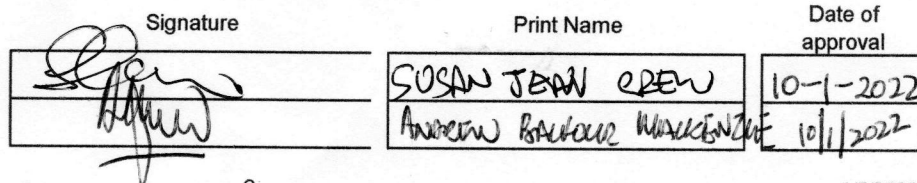 Signature Print Name Date of approval
SUSAN JEAN CREW 10-1-2022
ANDREW BALFOUR MACKENZIE 10/1/2022